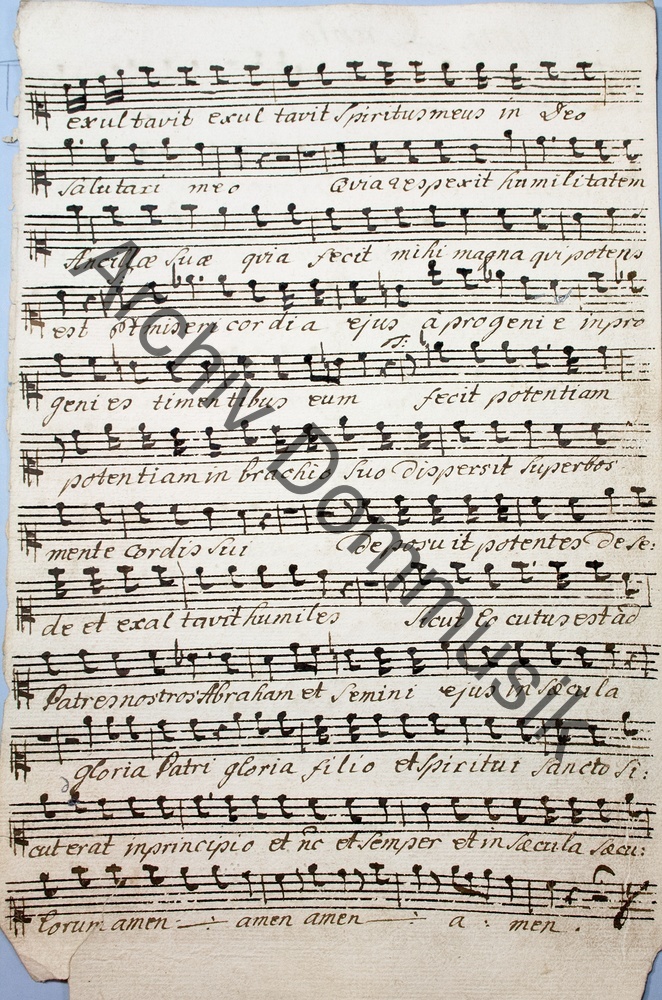 exultavit exul tavit Spiritus meus in Deo
Salutari meo Quia respexit humilitatem
Ancillæ suæ quia fecit mihi magna qui potens
est Et misericordia ejus a progenie in pro
genies timentibus eum fecit potentiam
potentiam in brachio suo dispersit superbos
mente cordis sui Deposuit potentes de se:
de et exaltavit humiles Sicut locutus est ad
Patres nostros Abraham et Semini ejus in sæcula
gloria Patri gloria filio et Spiritui Sancto Si:
cut erat in principio et nc et semper et in sæcula sæcu:
lorum amen amen amen a : men .
Archiv Dommusik